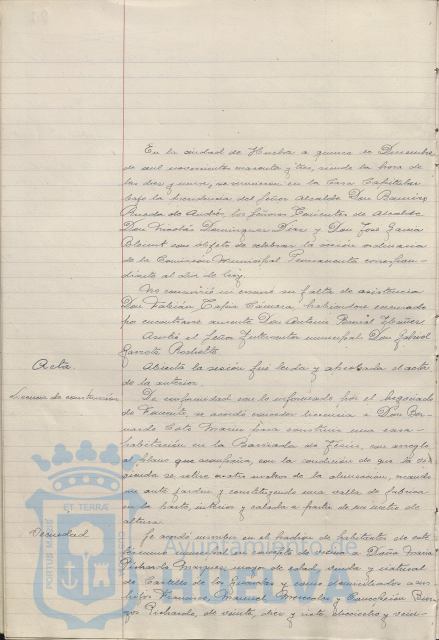 En la ciudad de Huelva a quince de Diciembre
de mil novecientos cuarenta y tres, siendo la hora de
las diez y nueve, se reunieron en la Casa Capitular
bajo la Presidencia del Señor Alcalde Don Ramiro
Pineda de Andrés los Señores Tenientes de Alcalde
Don Nicolás Domínguez Díaz y Don José García
con objeto de celebrar la sesión ordinaria
de la Comisión Municipal Permanente correspon-
diente al día de hoy.
No concurrió ni excusó su falta de asistencia
Don Fabián Tapia Cámara, habiéndose excusado
por encontrarse ausente Don Antonio
Asistió el Señor Interventor municipal Don Gabriel
Garrote
Acta. Abierta la sesión fue leída y aprobada el acta
de la anterior.
Licencia de construcción De conformidad con lo informado por el Negociado
de Fomento, se acordó conceder licencia a Don Ber-
nardo para construir una casa-
habitación en la Barriada de con arreglo
al plano que acompaña, con la condición de que la vi-
vienda se retire cuatro metros de la alineación,
de ante jardín y construyendo una valla de fábrica
en la parte inferior y calada a partir de un metro de
altura.
Vecindad Se acordó inscribir en el padrón de habitantes de este
término municipal en concepto de vecina a Doña María
Pichardo Márquez mayor de edad, viuda y natural
de Castillo de las Guardas y como domiciliados a sus
hijos Manuel, Mercedes y Concepción
Pichardo, de veinte, diez y siete, dieciocho y vein-
PORTUS MARIS ET TERRAE
Ayuntamiento de